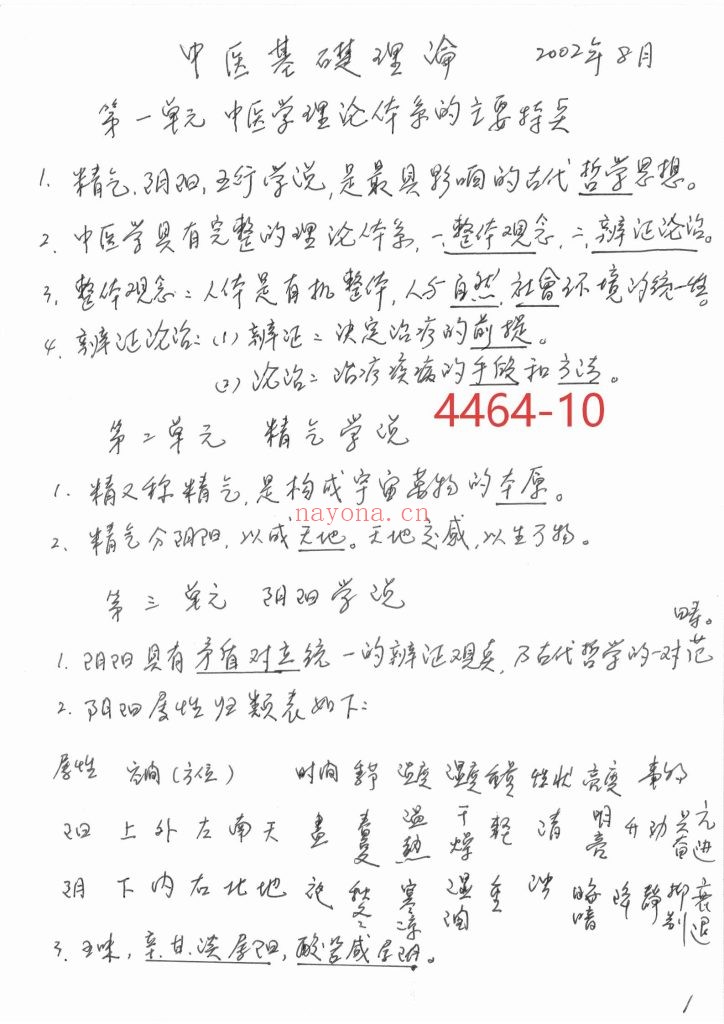 中医基礎理論 2002年8月
第一单元 中医学理论体系的主要特点
1. 精气,阴阳,五行学说,是最具影响的古代哲学思想。
2. 中医学具有完整的理论体系,一、整体观念,二、辨证论治。
3. 整体观念:人体是有机整体,人与自然,社會环境的统一性。
4. 辨证论治:(1)辨证:决定治疗的前提。
(2)论治:治疗疾病的手段和方法。
4464-10
第二单元 精气学说
1. 精又称精气,是构成宇宙万物的本原。
nayona.cn
2. 精气分阴阳,以成天地。天地交感,以生万物。
第三单元 阴阳学说
1. 阴阳具有矛盾对立统一的辨证观点,乃古代哲学的一对范畴。
2. 阴阳属性归类表如下:
属性 空间(方位) 时间 季节 温度 湿度 重量 性状 亮度 事物
阳 上 外 左 南 天 昼 春夏 温热 干燥 轻 清 明亮 升 动 兴奋 亢进
阴 下 内 右 北 地 夜 秋冬 寒凉 湿润 重 浊 晦暗 降 静 抑制 衰退
3. 五味,辛.甘.淡属阳,酸苦咸属阴。
1